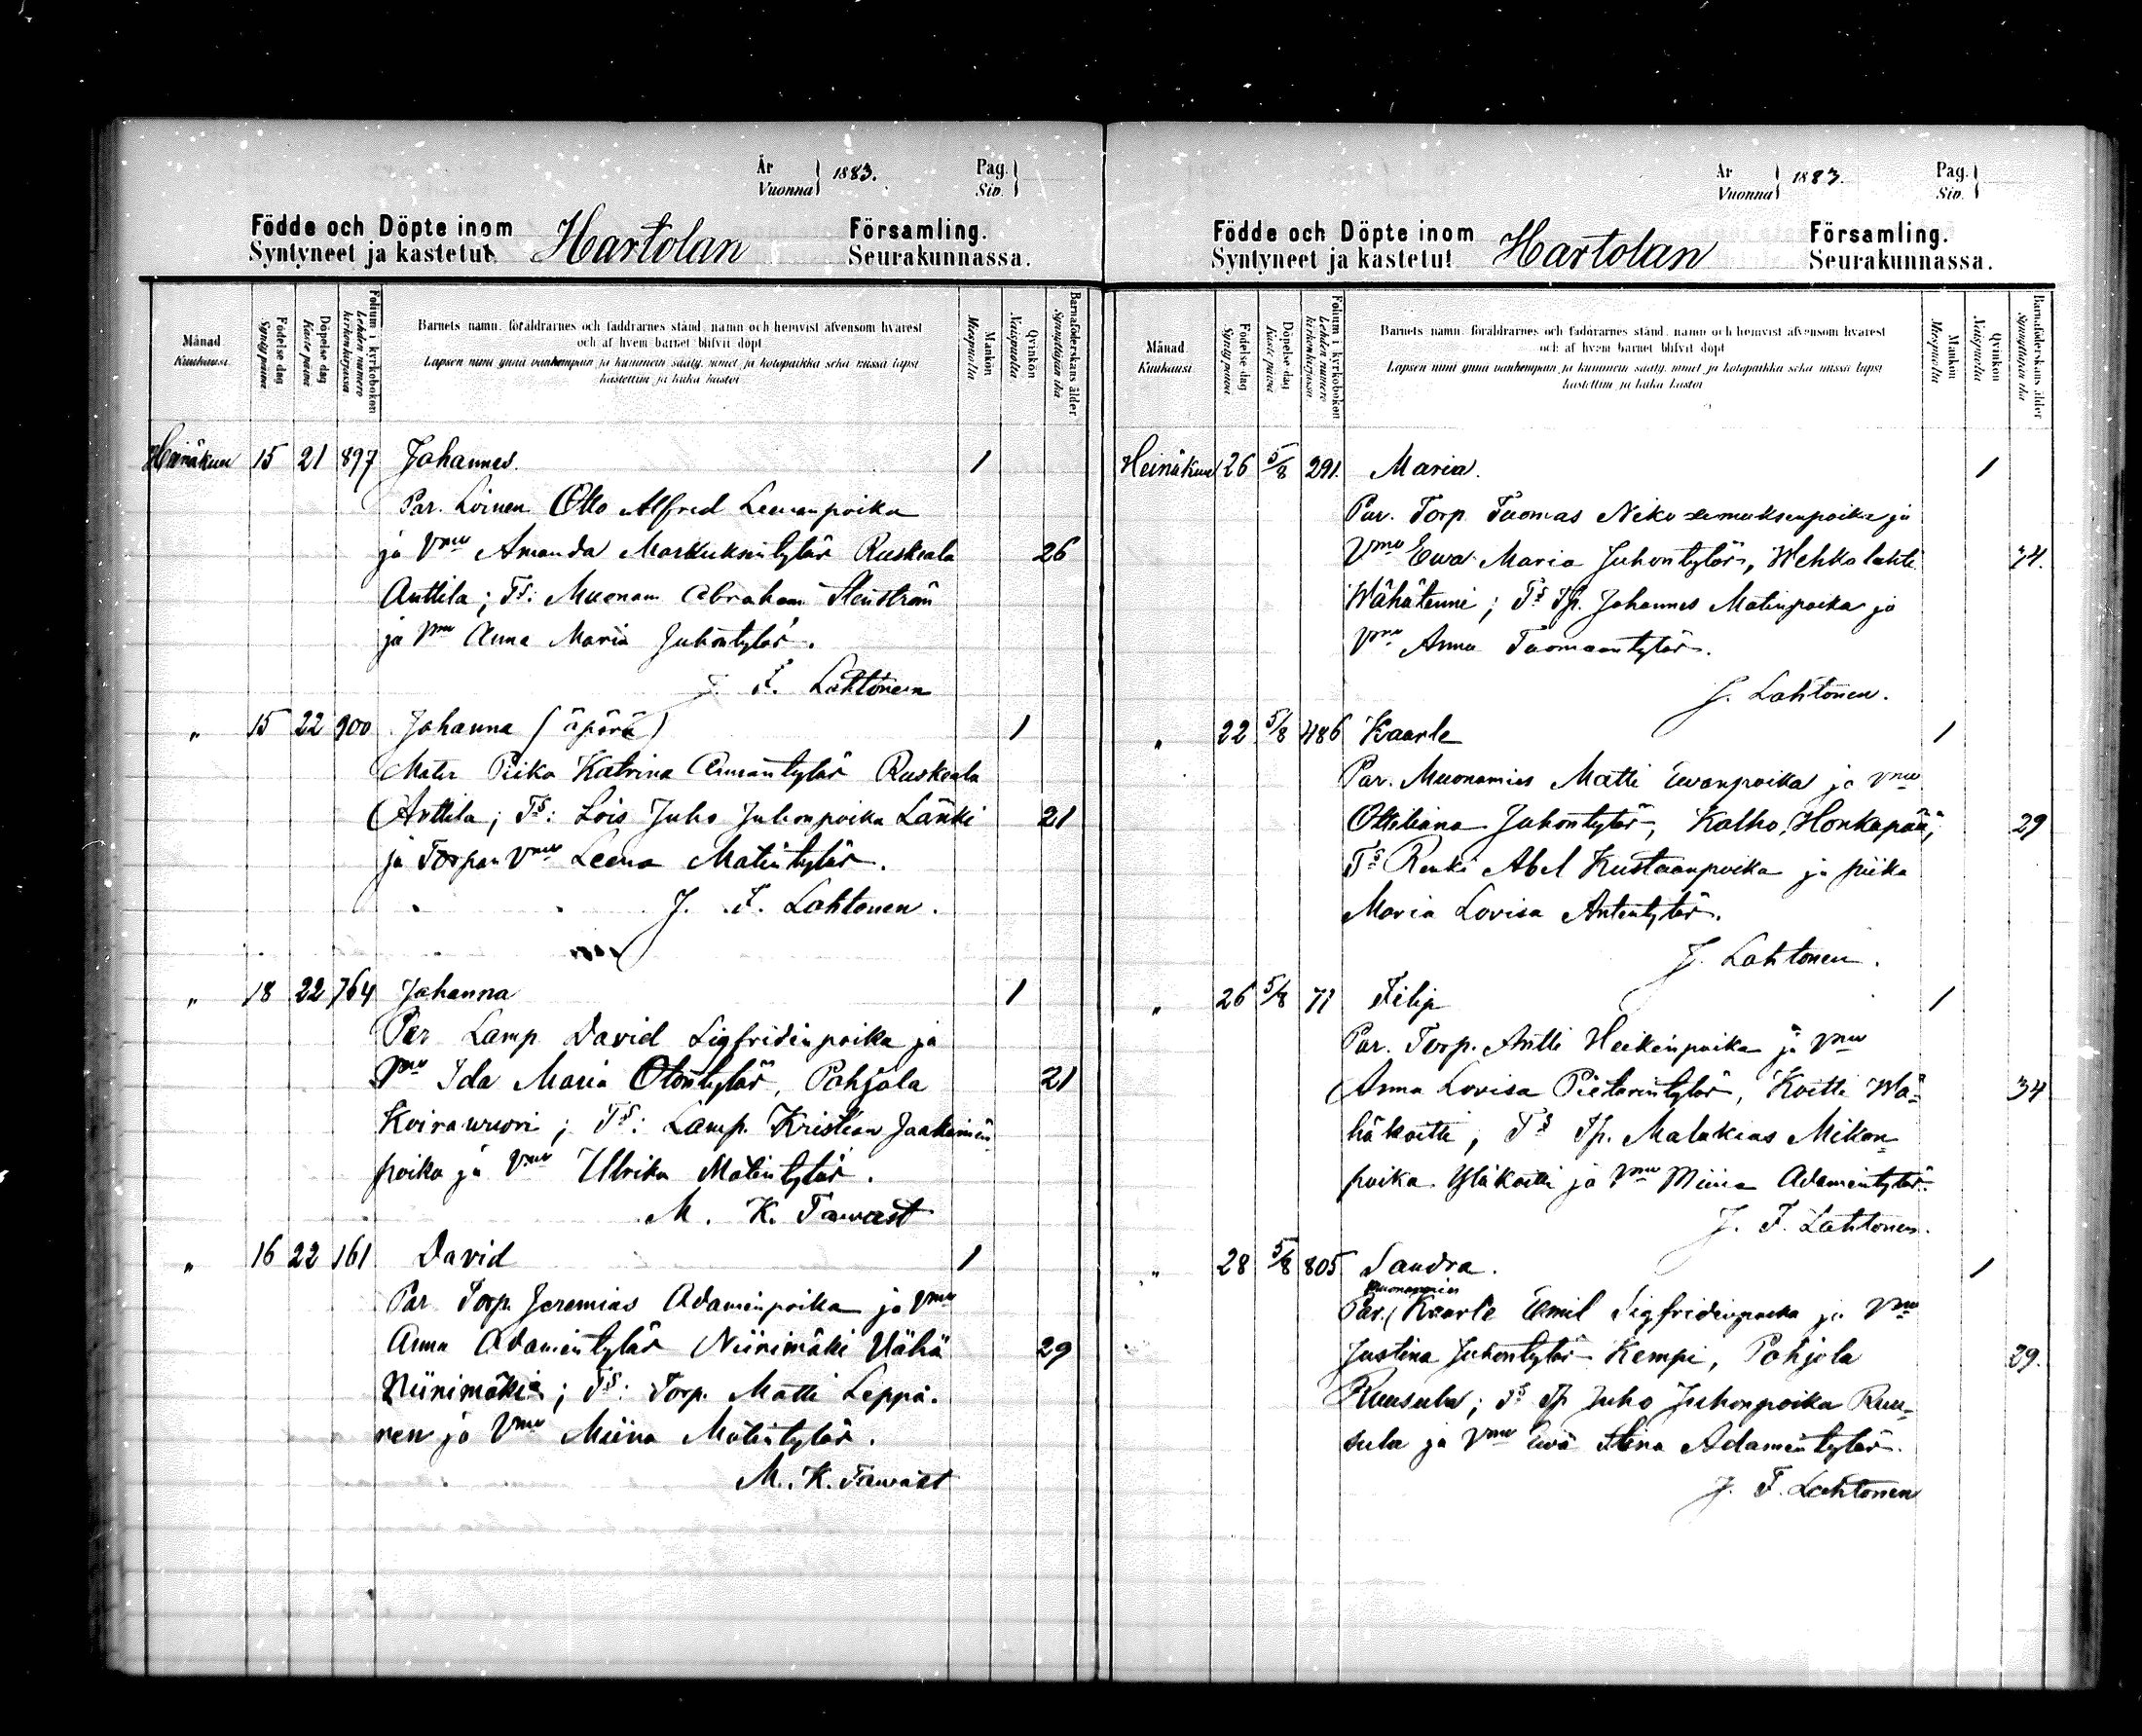 År
Vuonna
1883.
Pag.
Siv.
Födde och Döpte inom
Syntyneet ja kastetut
Hartolan
Församling.
Seurakunnassa.
Månad
Kuukausi
Födelse dag
Syntypäivä
Döpelse dag
Kastepäivä
Folium i kyrkoboken
Lehden numero
kirkonkirjassa
Barnets namn, föräldrarnes och faddrarnes stånd, namn och hemvist äfvensom hvarest
och af hvem barnet blifvit döpt
Lapsen nimi ynnä vanhempain ja kummein sääty, nimet ja kotopaikka sekä missä lapsi
kastettiin ja kuka kastoi
Mankön
Miespuolta
Qvinkön
Naispuolta
Barnaföderskans ålder
Synnyttäjän ikä
Heinäkuu 15 21 897 Johannes. 1
Par. Loinen Otto Alfred Leenanpoika
ja Vmo Amanda Markuksentytär Ruskeala 26
Anttila; Ts: Muonam Abraham Stenström
ja Vmo Anna Maria Juhontytär.
J. F. Lahtonen
" 15 22 900 Johanna (äpärä) 1
Mater Piika Katrina Annantytär Ruskeala
Anttila; Ts: Lois Juho Juhonpoika Länki 21
ja Torpan Vmo Leena Matintytär.
J. F. Lahtonen.
" 18 22 764 Johanna 1
Par Lamp David Sigfridinpoika ja
Vmo Ida Maria Otontytär, Pohjola 21
Koirawuori; Ts: Lamp. Kristian Jaakimin
poika ja Vmo Ulrika Matintytär.
M. K. Tawast
" 16 22 161 David 1
Par Torp. Jeremias Adaminpoika ja Vmo
Anna Adamintytär Niinimäki Vähä 29
Niinimäki; Ts: Torp. Matti Leppä-
nen ja Vmo Miina Matintytär.
M. K. Tawast
År
Vuonna
1883.
Pag.
Siv.
Födde och Döpte inom
Syntyneet ja kastetut
Hartolan
Församling.
Seurakunnassa.
Månad
Kuukausi
Födelse dag
Syntypäivä
Döpelse dag
Kastepäivä
Folium i kyrkoboken
Lehden numero
kirkonkirjassa
Barnets namn, föräldrarnes och fadörarnes stånd, namn och hemvist äfvensom hvarest
och af hvem barnet blifvit döpt
Lapsen nimi ynnä vanhempain ja kummein sääty, nimet ja kotopaikka sekä missä lapsi
kastettiin ja kuka kastoi
Mankön
Miespuolta
Qvinkön
Naispuolta
Barnaföderskans ålder
Synnyttäjän ikä
Heinäkuu 26 5/8 291. Maria. 1
Par. Torp. Tuomas Nikodemuksenpoika ja
Vmo Ewa Maria Juhontytär, Wehkalahti 34.
Wähätenni; Ts Tp. Johannes Matinpoika ja
Vmo Anna Tuomaantytär.
J. Lahtonen.
" 22 5/8 486 Kaarle 1
Par. Muonamies Matti Ewanpoika ja Vmo
Ottiliana Juhontytär, Kalho, Honkapää; 29
Ts Renki Abel Kustaanpoika ja piika
Maria Lovisa Antintytär.
J. Lahtonen.
" 26 5/8 71 Filip 1
Par. Torp. Antti Heikinpoika ja Vmo
Anna Lovisa Pietarintytär, Koitti Wä- 34
häkoitti; Ts Tp. Malakias Mikon-
poika Yläkoitti ja Vmo Miina Adamintytär.
J. F. Lahtonen.
" 28 5/8 805 Sandra. 1
muonamies
Par. Kaarle Emil Sigfridinpoika ja Vmo
Justina Juhontytär Kempi, Pohjola 29.
Ruusula; Ts Tp Juho Juhonpoika Ruu-
sula ja Vmo Ewa Stina Adamintytär.
J. F. Lahtonen